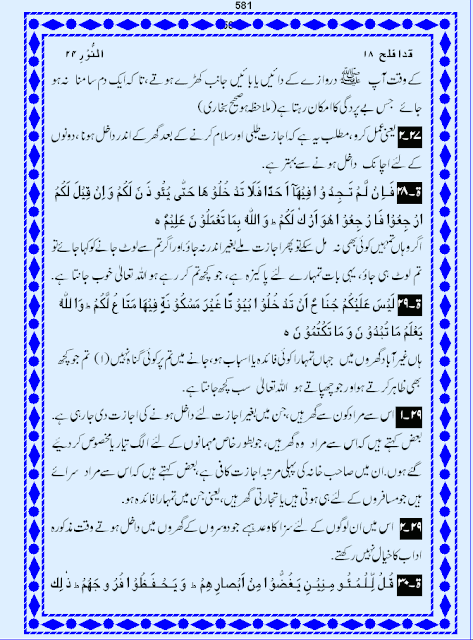 581
قد افلح ۱۸ النُّوْر ۲۴
کے وقت آپ ﷺ دروازے کے دائیں یا بائیں جانب کھڑے ہوتے، تاکہ ایک دم سامنا نہ ہو
جائے جس بے پردگی کا امکان رہتا ہے (ملاحظہ ہو صحیح بخاری)
۲۷۔۲ یعنی عمل کرو، مطلب یہ ہے کہ اجازت طلبی اور سلام کرنے کے بعد گھر کے اندر داخل ہونا، دونوں
کے لئے اچانک داخل ہونے سے بہتر ہے۔
ۃ۔۲۸ فَاِنْ لَّمْ تَجِدُ وْا فِیْھَآ اَ حَدًا فَلَا تَدْ خُلُوْ ھَا حَتّٰی یُؤْ ذَ نَ لَکُمْ وَاِنْ قِیْلَ لَکُمُ
ارْ جِعُوْا فَا رْ جِعُوْا ھُوَ اَرْ کٰی لَکُمْ ؕ وَ اللّٰہُ بِمَا تَعْمَلُوْ نَ عَلِیْم’‘ ہ
اگر وہاں تمہیں کوئی بھی نہ مل سکے تو پھر اجازت ملے بغیر اندر نہ جاؤ اور اگر تم سے لوٹ جانے کو کہا جائے تو
تم لوٹ ہی جاؤ، یہی بات تمہارے لئے پاکیزہ ہے، جو کچھ تم کر رہے ہو اللہ تعالیٰ خوب جانتا ہے۔
ۃ۔۲۹ لَیْسَ عَلَیْکُمْ جُنَا حٌ اَنْ تَدْ خُلُوْ ا بُیُوْ تًا غَیْرَ مَسْکُوْ نَۃٍ فِیْھَا مَتَا عٌ لَّکُمْ ؕ وَاللّٰہُ
یَعْلَمُ مَا تُبْدُوْ نَ وَ مَا تَکْتُمُوْ نَ ہ
ہاں غیر آباد گھروں میں جہاں تمہارا کوئی فائدہ یا اسباب ہو، جانے میں تم پر کوئی گناہ نہیں (۱) تم جو کچھ
بھی ظاہر کرتے ہو اور جو چھپاتے ہو اللہ تعالیٰ سب کچھ جانتا ہے۔
۲۹۔۱ اس سے مراد کون سے گھر ہیں، جن میں بغیر اجازت لئے داخل ہونے کی اجازت دی جا رہی ہے۔
بعض کہتے ہیں کہ اس سے مراد وہ گھر ہیں، جو بطور خاص مہمانوں کے لئے الگ تیار یا مخصوص کر دیئے
گئے ہوں۔ ان میں صاحب خانہ کی پہلی مرتبہ اجازت کافی ہے، بعض کہتے ہیں کہ اس سے مراد سرائے
ہیں جو مسافروں کے لئے ہی ہوتی ہیں یا تجارتی گھر ہیں، یعنی جن میں تمہارا فائدہ ہو۔
۲۹۔۲ اس میں ان لوگوں کے لئے سزا کا وعدہ ہے جو دوسروں کے گھروں میں داخل ہوتے وقت مذکورہ
اداب کا خیال نہیں رکھتے۔
ۃ۔۳۰ قُلْ لِّلْمُئْو مِنِیْنَ یَغُضُّوْا مِنْ اَبْصَارِ ھِمْ ؕ وَ یَحْفَظُوْا فُرُ وْ جَھُمْ ؕ ذٰ لِکَ